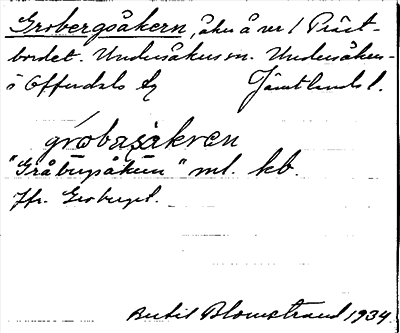 Grobergsåkern, åker å nr 1 Präst-
bordet. Undersåkers sn. Undersåkers
o Offerdals tg Jämtlands l.
gróbasåkren
"Gråbergsåkern" ml. kb.
Jfr. Groberget.
Bertil Blomstrand 1934